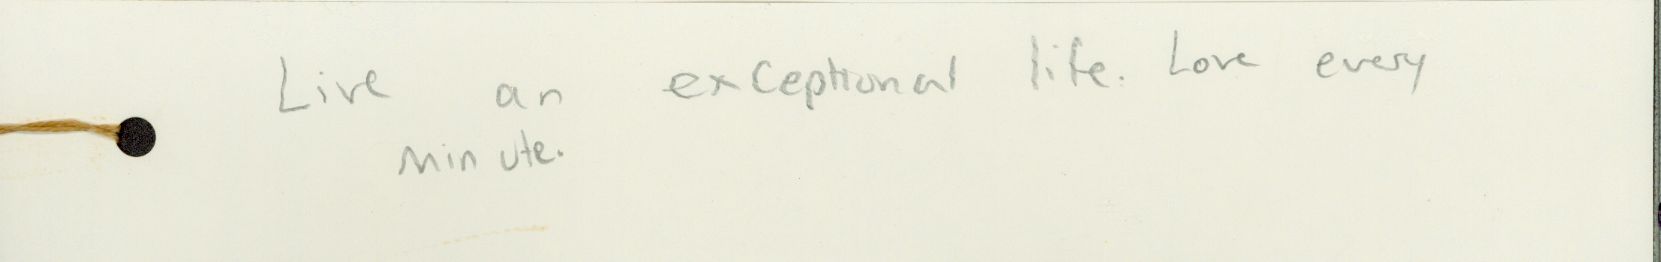 Live an exceptional life. Love every
minute.